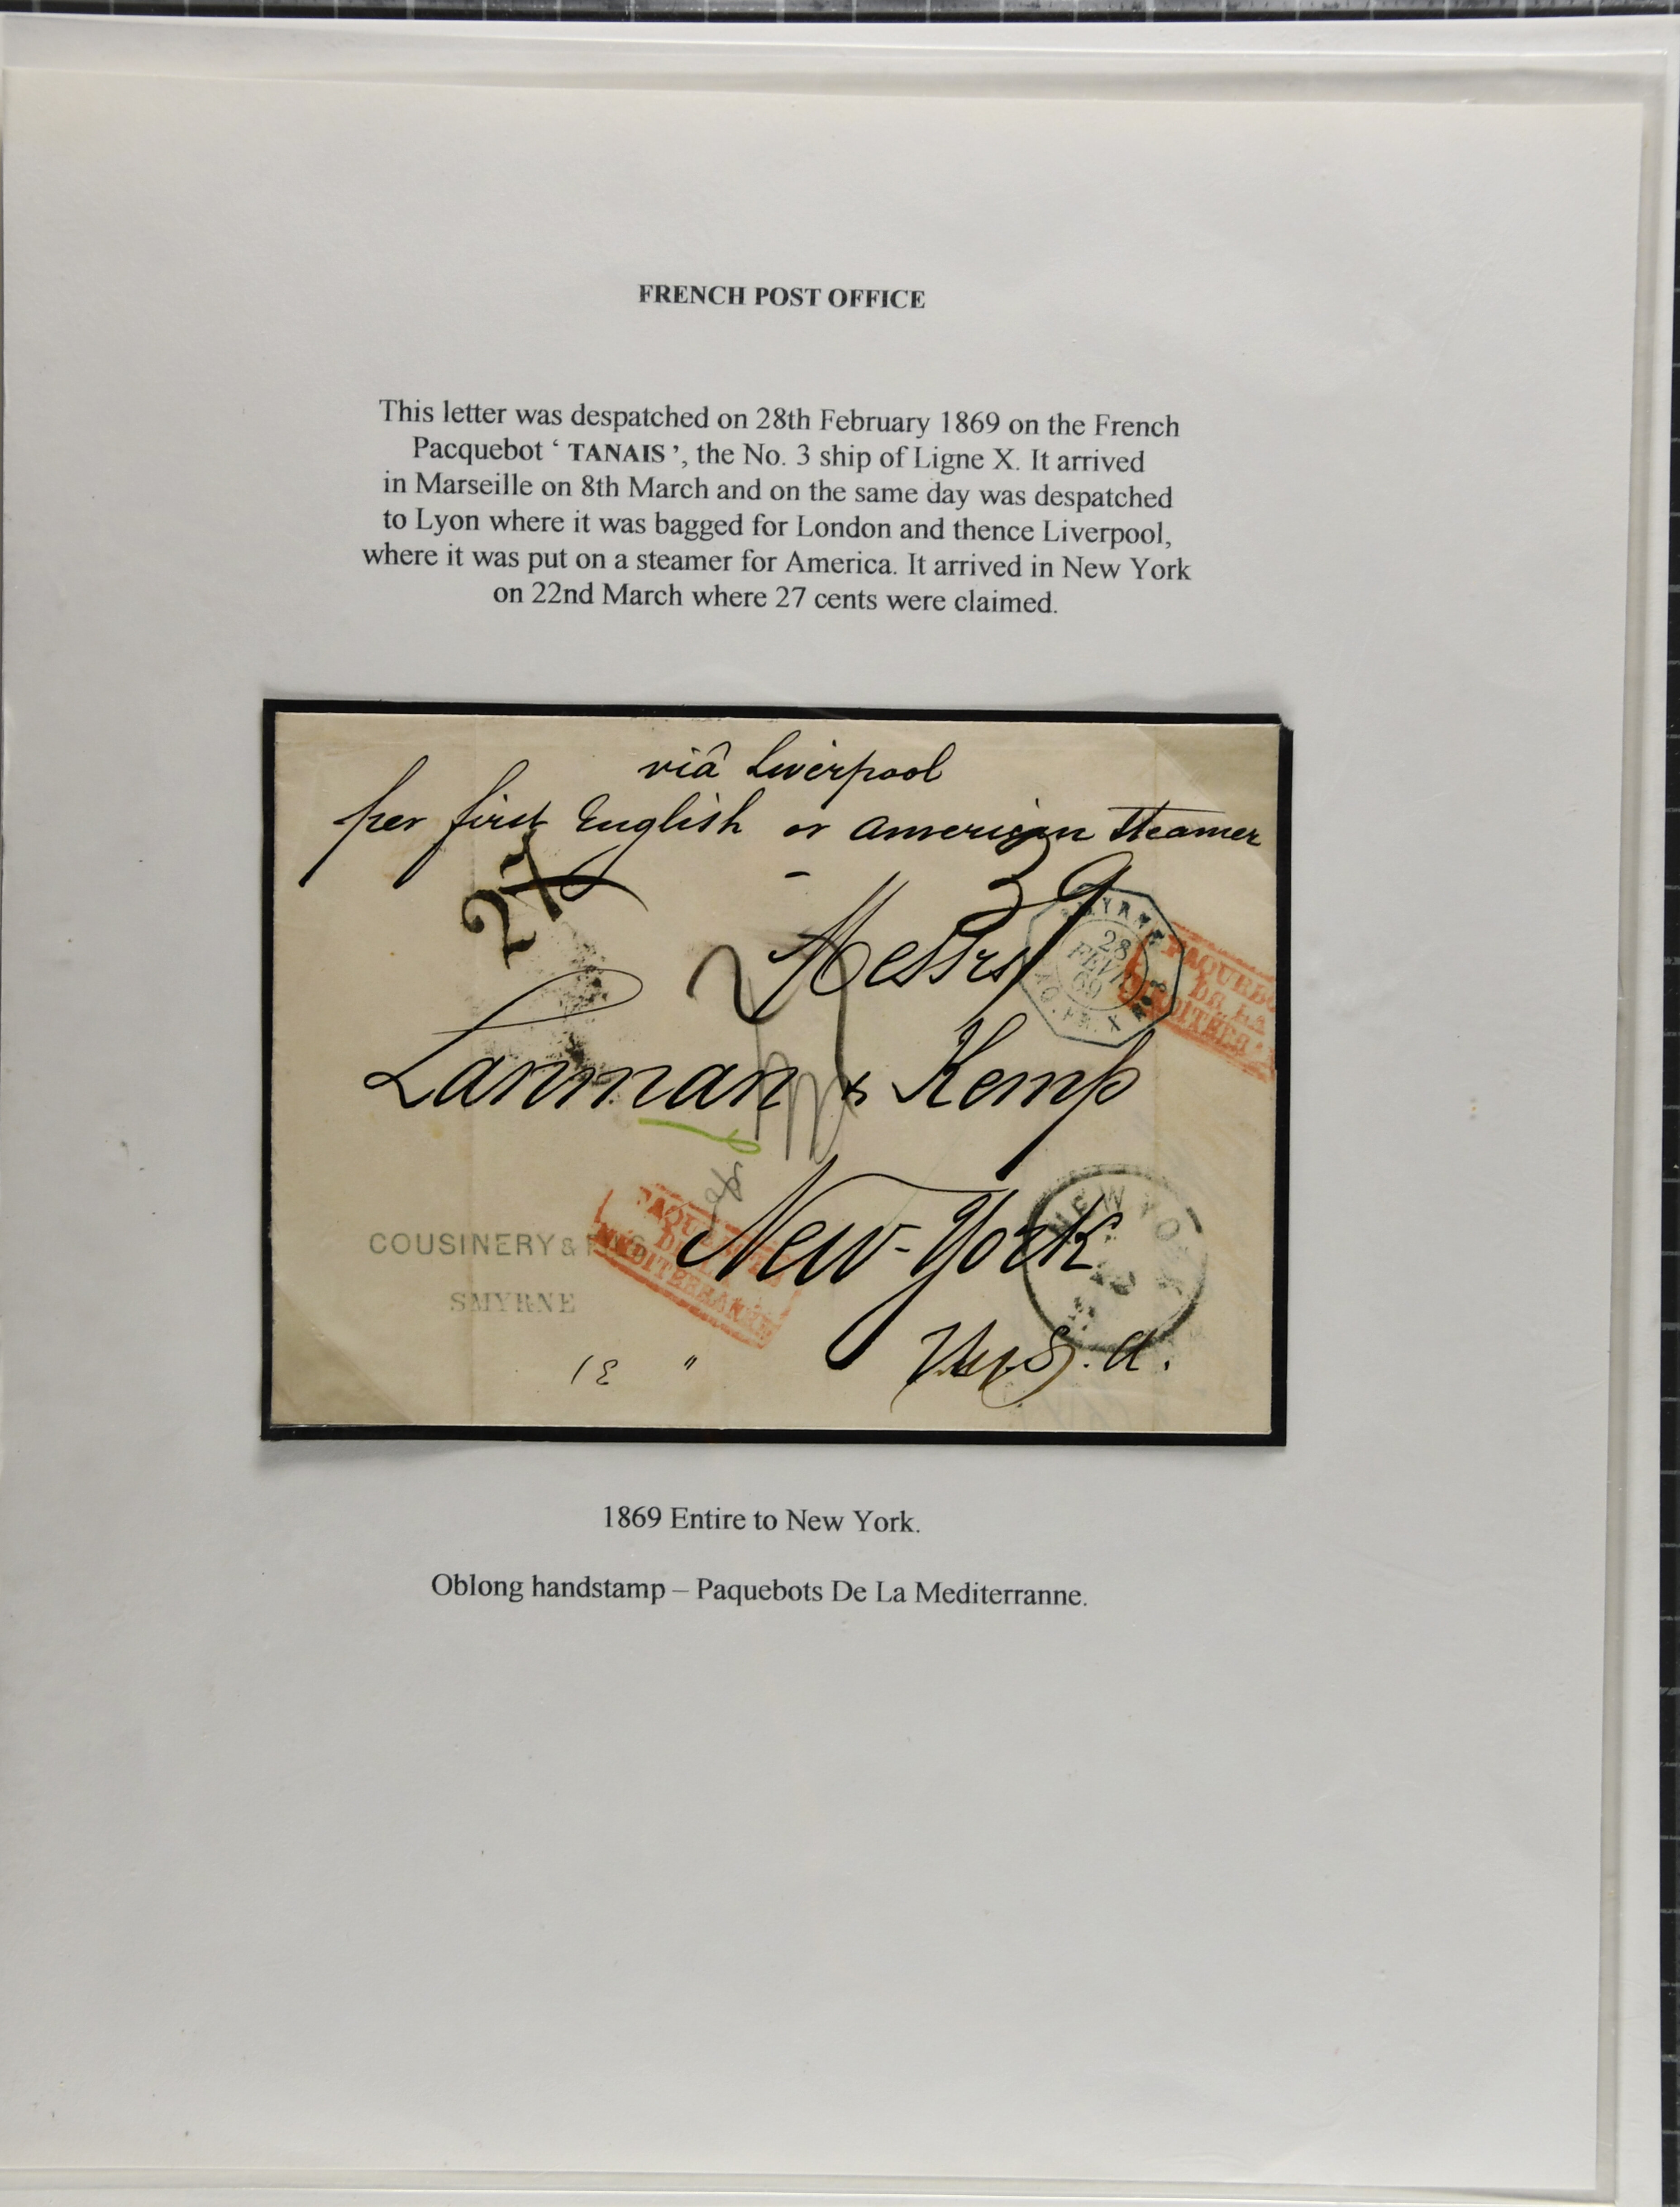 FRENCH POST OFFICE
This letter was despatched on 28th February 1869 on the French
Pacquebot ‘ TANAIS ’, the No. 3 ship of Ligne X. It arrived
in Marseille on 8th March and on the same day was despatched
to Lyon where it was bagged for London and thence Liverpool,
where it was put on a steamer for America. It arrived in New York
on 22nd March where 27 cents were claimed.
viâ Liverpool
per first English or American Steamer
27
39
Messrs
SMYRNE
28
FEVR
69
PAQUEBO
DE LA
Lanman & Kemp
New-York
U.S.A.
NEW YORK
PAQUEBOTS
DE LA
MÉDITERRANÉE
COUSINERY &
SMYRNE
1869 Entire to New York.
Oblong handstamp – Paquebots De La Mediterranne.